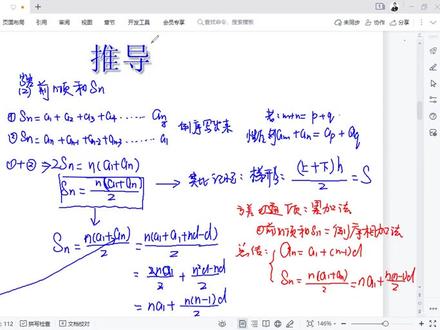 页面布局 引用 审阅 视图 章节 开发工具 会员专享 查找命令、搜索模板 未同步 协作 分享
推导
(2) 前n项和Sn
① Sn = a₁ + a₂ + a₃ + a₄ …… an
② Sn = an + an-1 + an-2 + an-3 …… a₁
倒序写出来
若:m+n = p+q
am + an = ap + aq
①+② ⇒ 2Sn = n(a₁+an)
Sn = n(a₁+an)/2 → 类比记忆:梯形:(上+下)h/2 = S
Sn = n(a₁+an)/2 = n(a₁+a₁+nd-d)/2
= 2na₁/2 + n²d-nd/2
= na₁ + n(n-1)d/2
通项:累加法
②前n项和Sn = 倒序相加法
总结: { an = a₁ + (n-1)d
Sn = n(a₁+an)/2 = na₁ + n(n-1)d/2
: 112 拼写检查 文档校对 146%